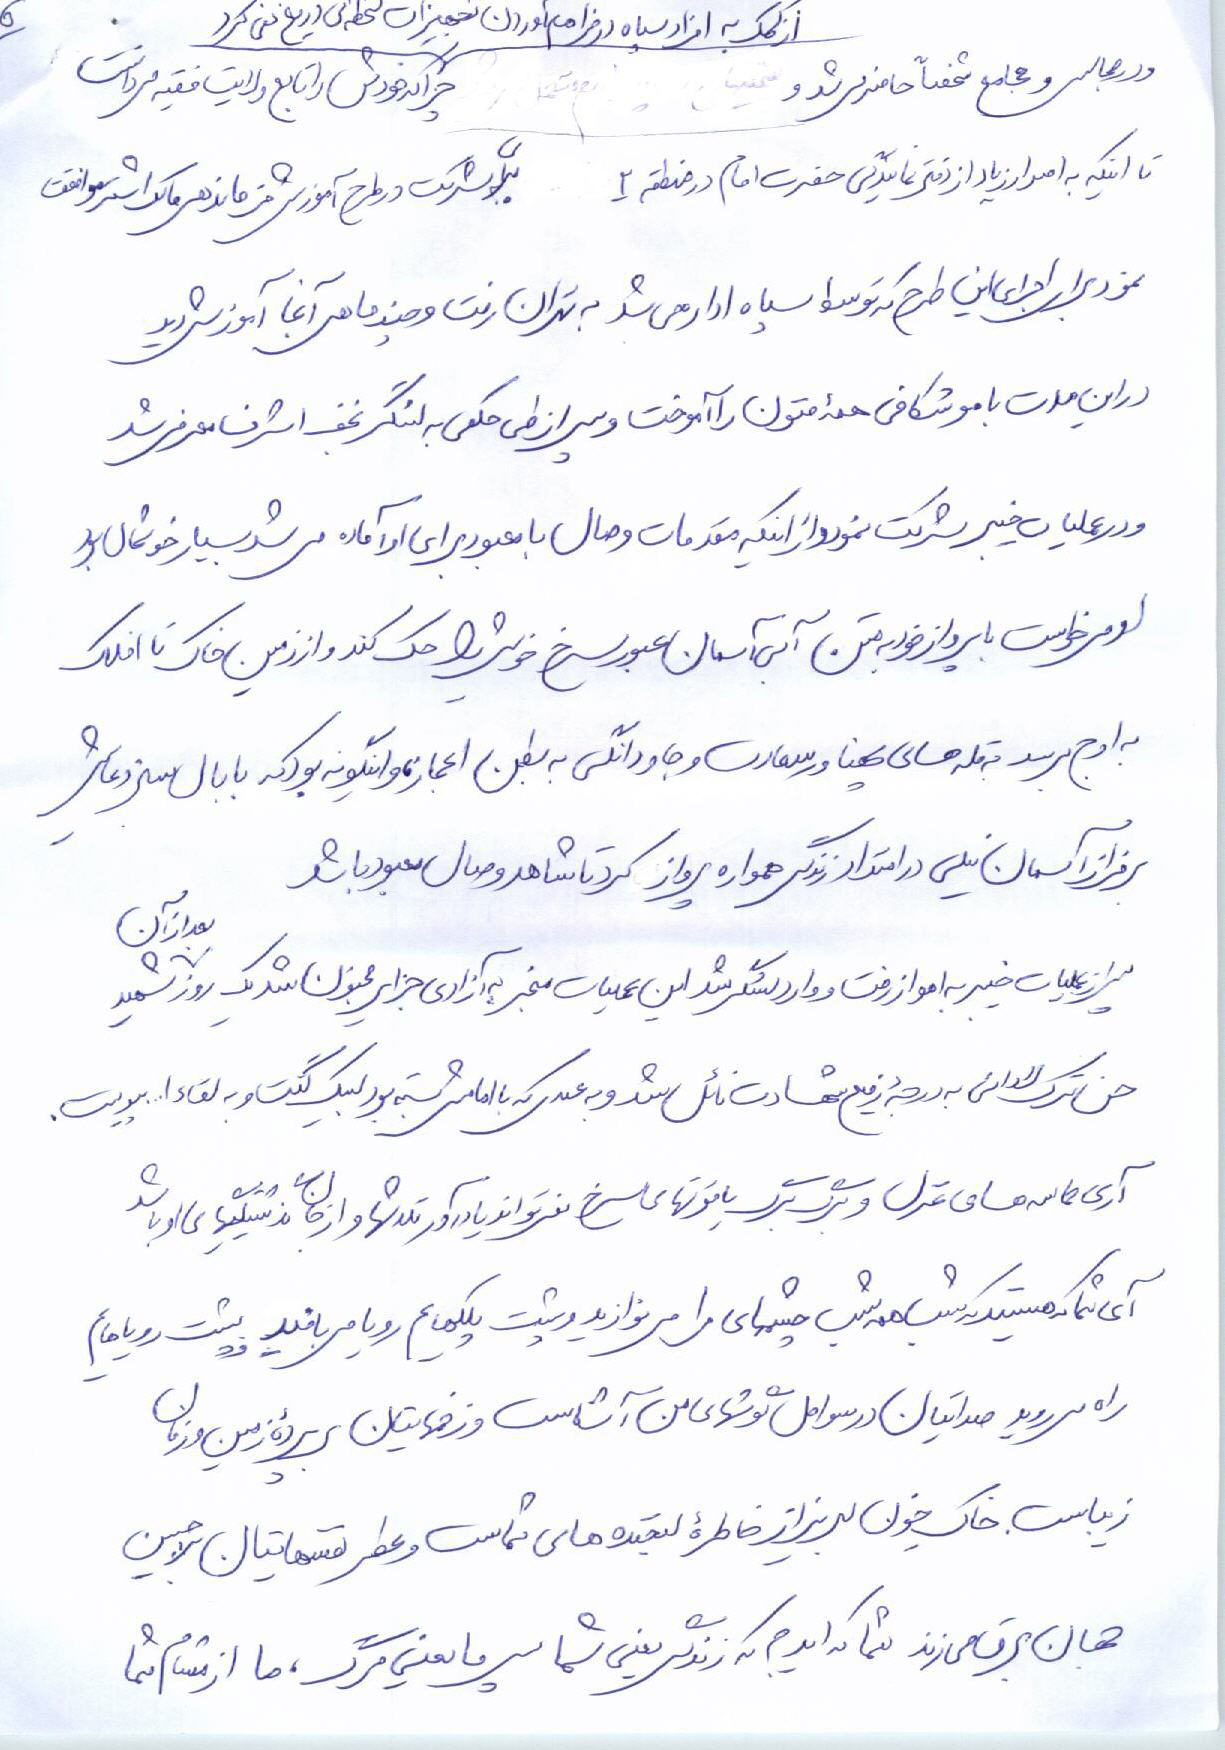 از کمک به افراد سپاه در فراهم آوردن تجهیزات لحظه‌ای دریغ نمی کرد
و در مجالس و مجامع شخصاً حاضر می شد و چرا که خودش را تابع ولایت فقیه می دانست
تا اینکه به اصرار زیاد از دفتر نمایندگی حضرت امام در منطقه ۲ برای شرکت در طرح آموزش فرماندهی مالک اشتر موافقت
نمود برای اجرای این طرح که توسط سپاه اداره می شد به تهران رفت و چند ماهی آنجا آموزش دید
در این مدت با موشکافی همهٔ متون را آموخت و پس از طی حکمی به لشگر نجف اشرف معرفی شد
و در عملیات خیبر شرکت نمود و از اینکه مقدمات وصال با معبود برای او آماده می شد بسیار خوشحال بود
او می خواست با پرواز خود به متن آبی آسمان عبور سرخ خویش را حک کند و از زمین خاک تا افلاک
به اوج برسد به قله های پهناور سعادت و جاودانگی به بطن اعجاز و اینگونه بود که با بال سبز دعایش
بر فراز آسمان نیلی در امتداد زندگی همواره پرواز کرد تا شاهد وصال معبود باشد
پس از عملیات خیبر به اهواز رفت و وارد لشگر شد این عملیات منجر به آزادی جزایر مجنون شد یک روز بعد از آن شهید
حسن ترک لادانی به درجهٔ رفیع شهادت نائل شد و به عهدی که با امامش بسته بود لبیک گفت و به لقاءا... پیوست.
آری حماسه های غزل و برگ برگ یاقوتهای سرخ نمی تواند یادآور تلاشها و از جان گذشتگیهای او باشد
آی شما که هستید که شب همه شب چشمهای مرا می نوازید و پشت پلکهایم رویا می بافید و پشت رویاهایم
راه می روید صدایتان در سواحل گوشهای من آشناست و زخمهایتان بر پردهٔ زمین و زمان
زیباست. خاک خون لبریز از خاطرهٔ لبخنده های شماست و عطر نفسهایتان بر جبین
جهان برق می زند شما که اید که زندگی یعنی شما پس ما یعنی مرگ، ما از مشام شما